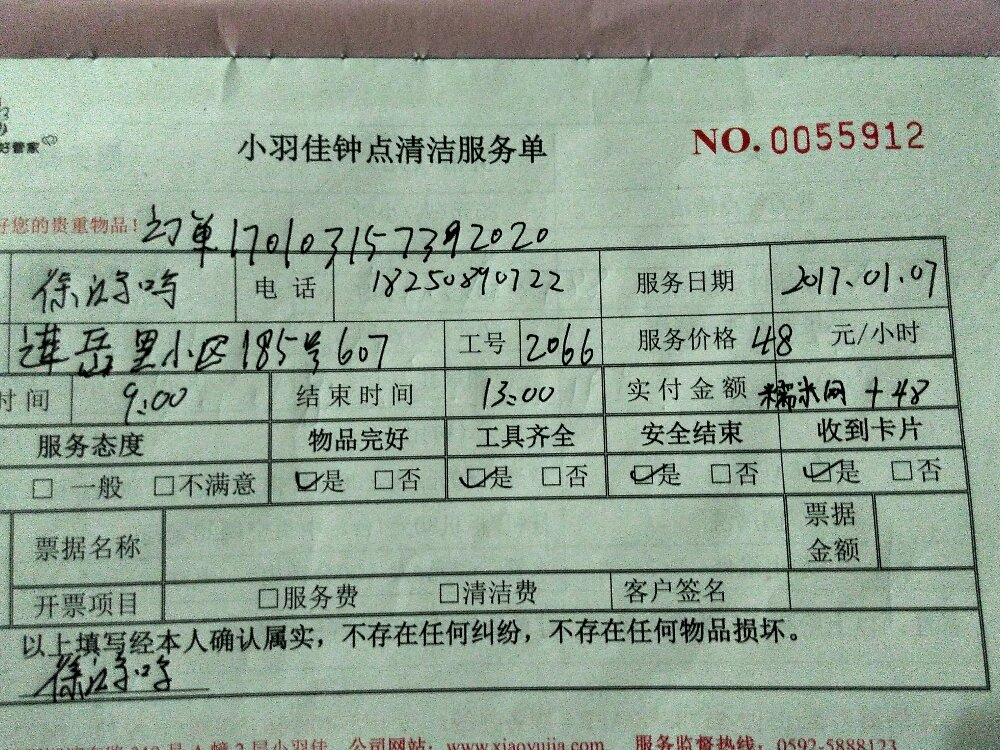 好管家
小羽佳钟点清洁服务单
NO. 0055912
好您的贵重物品! 订单170103157392020
电 话 18250890722 服务日期 2017.01.07
进岳里小区185号607 工号 2066 服务价格 48 元/小时
时间 9:00 结束时间 13:00 实付金额 糯米网+48
服务态度 物品完好 工具齐全 安全结束 收到卡片
□ 一般 □不满意 ☑是 □否 ☑是 □否 ☑是 □否 ☑是 □否
票据名称 票据金额
开票项目 □服务费 □清洁费 客户签名
以上填写经本人确认属实，不存在任何纠纷，不存在任何物品损坏。
2层小羽佳 公司网站：www.xiaoyujia.com 服务监督热线：0592-5888123